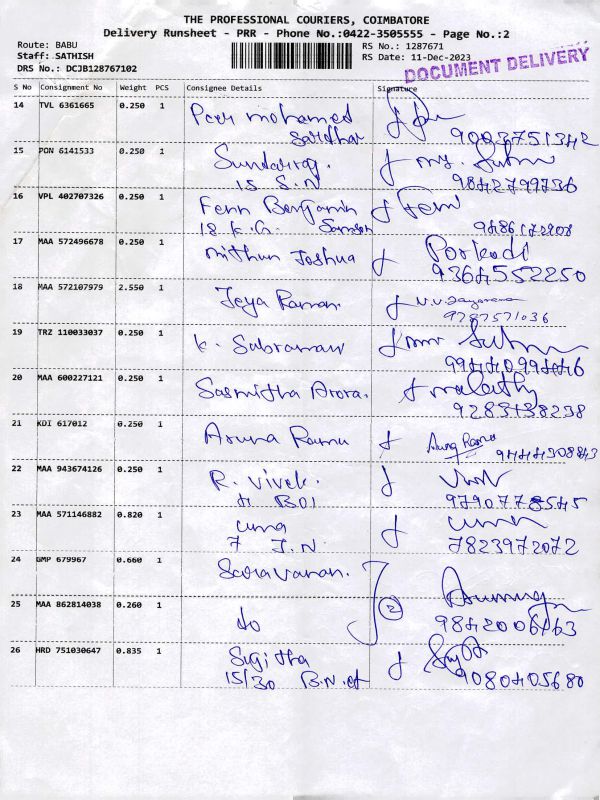 THE PROFESSIONAL COURIERS, COIMBATORE
Delivery Runsheet - PRR - Phone No.:0422-3505555 - Page No.:2
Route: BABU RS No.: 1287671
Staff: SATHISH RS Date: 11-Dec-2023
DRS No.: DCJB128767102 DOCUMENT DELIVERY
S No Consignment No Weight PCS Consignee Details Signature
14 TVL 6361665 0.250 1 Peer mohamed
Sardhar 9003751342
15 PON 6141533 0.250 1 Sundarraj.
15 S.N 9842799736
16 VPL 402707326 0.250 1 Fenn Benjamin Fenn
18 K.G. Samson
17 MAA 572496678 0.250 1 Mithun Joshua Porkodi
9364552250
18 MAA 572107979 2.550 1 Jeya Raman. V.V. Jayarama
9787571036
19 TRZ 110033037 0.250 1 K. Subramani
9944099446
20 MAA 600227121 0.250 1 Sasmitha Arora. malathy
9283138238
21 KDI 617012 0.250 1 Aruna Ramu Aruna Ramu
9444308843
22 MAA 943674126 0.250 1 R. Vivek.
4 BOI 9790778545
23 MAA 571146882 0.820 1 uma uma
7 J.N. 7823972072
24 GMP 679967 0.660 1 Saravanan.
25 MAA 862814038 0.260 1 do 2
9842006163
26 HRD 751030647 0.835 1 Sugitha
15/30 B.N.ct 9080405680